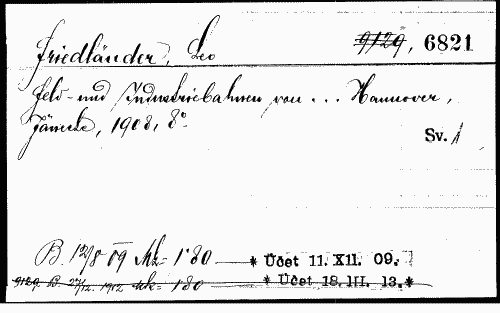 Friedländer, Leo 9129, 6821
Feld- und Industriebahnen von ... Hannover,
Jänecke, 1908, 8°.
Sv. 1
B. 12/8 09 Mk= 1·80 — * Účet 11. XII. 09.
9129 B. 27/12. 1912 Mk= 1·80 — * Účet 18. III. 13.*